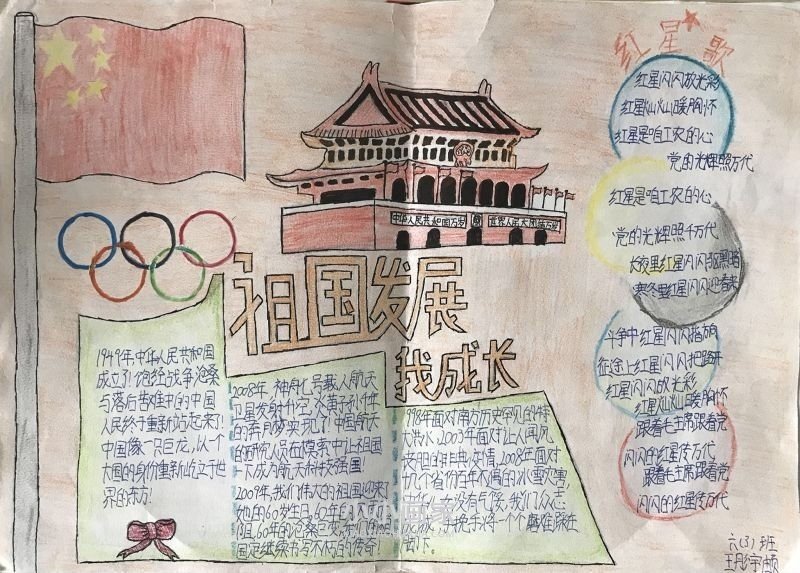 红星歌
红星闪闪放光彩
红星灿灿暖胸怀
红星是咱工农的心
党的光辉照万代
红星是咱工农的心
党的光辉照千万代
长夜里红星闪闪驱黑暗
寒冬里红星闪闪迎春来
斗争中红星闪闪指方向
征途上红星闪闪把路开
红星闪闪放光彩
红星灿灿暖胸怀
跟着毛主席跟着党
闪闪的红星传万代
跟着毛主席跟着党
闪闪的红星传万代
中华人民共和国万岁
世界人民大团结万岁
祖国发展
我成长
1949年,中华人民共和国
成立了!饱经战争沧桑
与落后苦难中的中国
人民终于重新站起来了!
中国像一只巨龙,以一个
大国的身份重新屹立于世
界的东方!
2008年,神舟七号载人航天
卫星发射升空,火黄子孙千年
的奔月梦实现了!中国航天
的研究人员在摸索中让祖国
一下成为航天科技强国!
2009年,我们伟大的祖国迎来
她的60岁生日,60年的
60年的沧桑巨变,
国定继续书写不朽的传奇!
998年面对南方历史罕见的特
大洪水,2003年面对让人闻风
丧胆的非典疫情,2008年面对
十几个省份百年不遇的冰雪灾害,
没有气馁,我们众志
成城,手挽手将一个个难踩在
脚下。
六(3)班